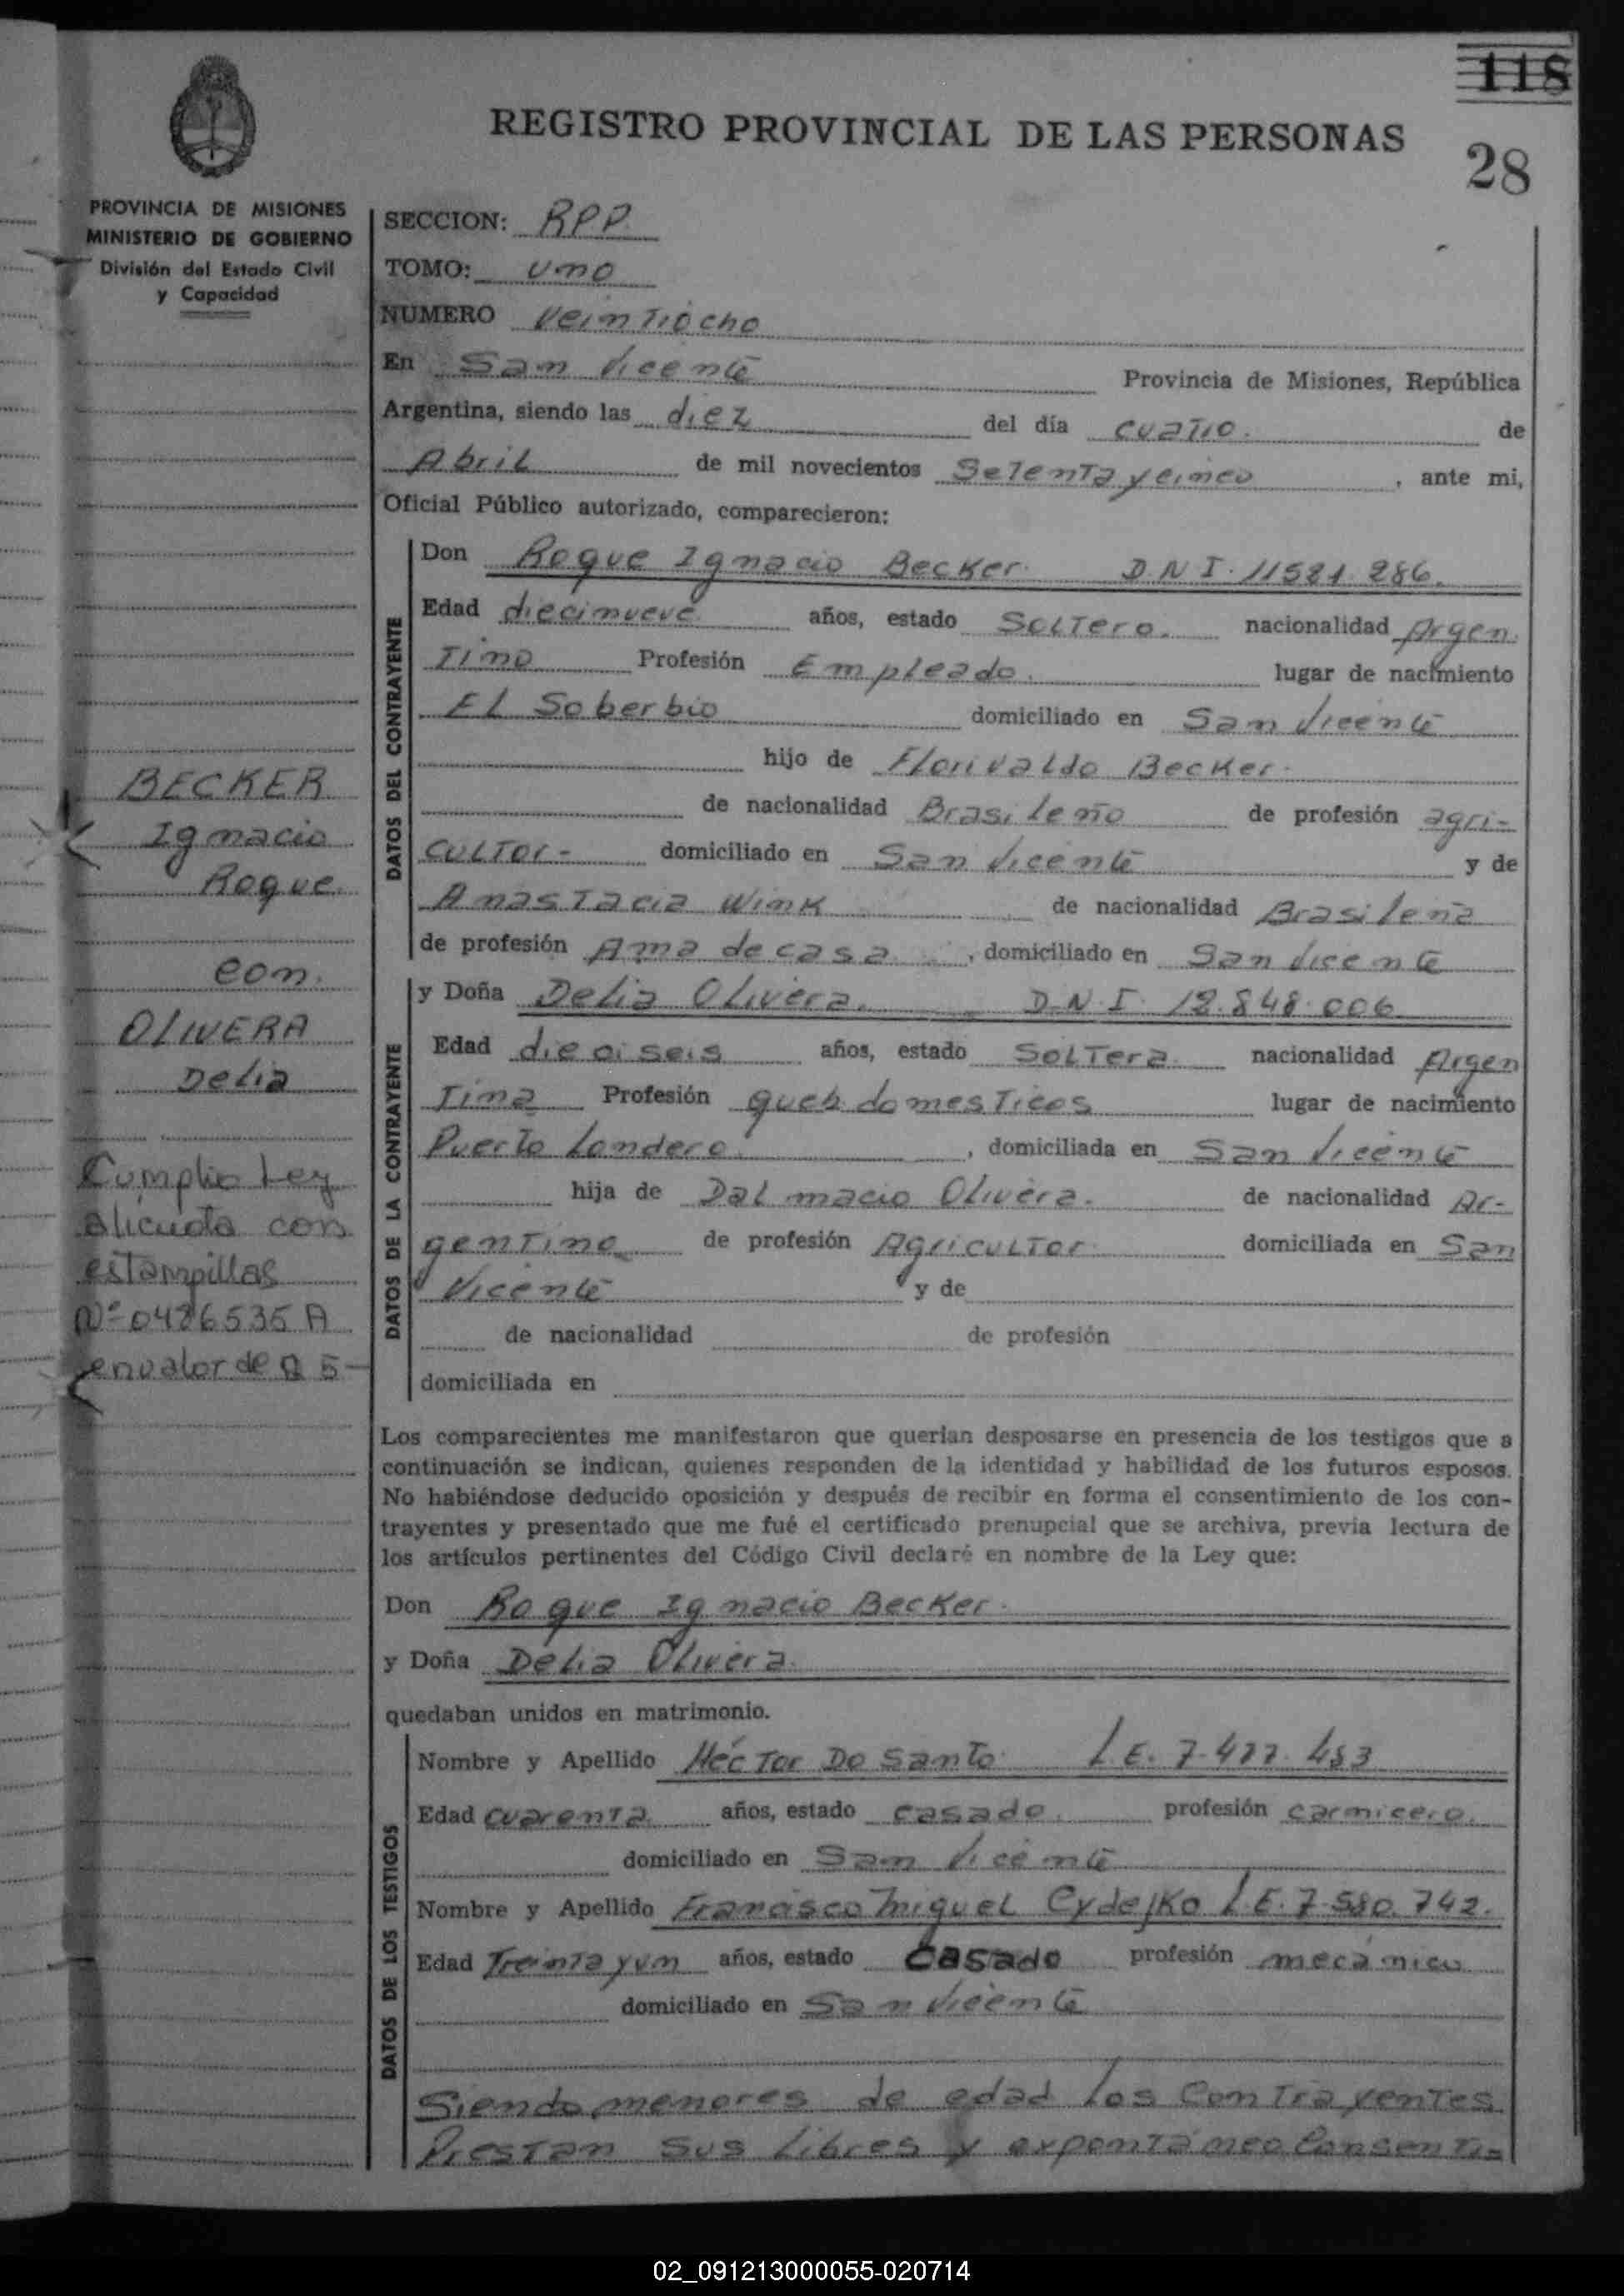 118
REGISTRO PROVINCIAL DE LAS PERSONAS
28
PROVINCIA DE MISIONES
MINISTERIO DE GOBIERNO
División del Estado Civil
y Capacidad
SECCION: RPP
TOMO: uno
NUMERO Veintiocho
En San Vicente Provincia de Misiones, República
Argentina, siendo las diez del día cuatro. de
Abril de mil novecientos Setenta y cinco, ante mi,
Oficial Público autorizado, comparecieron:
DATOS DEL CONTRAYENTE
Don Roque Ignacio Becker. D.N.I. 11581.286.
Edad diecinueve. años, estado Soltero. nacionalidad Argen.
Tino Profesión Empleado. lugar de nacimiento
El Soberbio domiciliado en San Vicente
hijo de Florivaldo Becker.
de nacionalidad Brasileño de profesión agri-
cultor- domiciliado en San Vicente y de
Anastacia Wink de nacionalidad Brasileña
de profesión Ama de casa, domiciliado en San Vicente
DATOS DE LA CONTRAYENTE
y Doña Delia Olivera. D.N.I. 12.848.006
Edad dieciseis años, estado Soltera nacionalidad Argen
Tina Profesión queh domesticos lugar de nacimiento
Puerto Londero, domiciliada en San Vicente
hija de Dalmacio Olivera. de nacionalidad Ar-
gentino de profesión Agricultor domiciliada en San
Vicente y de
de nacionalidad de profesión
domiciliada en
BECKER
Ignacio
Roque.
con.
OLIVERA
Delia
Cumplio Ley
alicuota con
estampillas
Nº 0486535 A
en valor de $ 5-
Los comparecientes me manifestaron que querian desposarse en presencia de los testigos que a
continuación se indican, quienes responden de la identidad y habilidad de los futuros esposos.
No habiéndose deducido oposición y después de recibir en forma el consentimiento de los con-
trayentes y presentado que me fué el certificado prenupcial que se archiva, previa lectura de
los artículos pertinentes del Código Civil declaré en nombre de la Ley que:
Don Roque Ignacio Becker.
y Doña Delia Olivera.
quedaban unidos en matrimonio.
DATOS DE LOS TESTIGOS
Nombre y Apellido Héctor Do Santo L.E. 7.477.483
Edad cuarenta años, estado casado. profesión carnicero.
domiciliado en San Vicente
Nombre y Apellido Francisco Miguel Cydejko L.E. 7.580.742.
Edad Treinta y un años, estado Casado profesión mecánico
domiciliado en San Vicente
Siendo menores de edad los Contrayentes
Prestan sus libres y expontáneo Consenti-
02_091213000055-020714